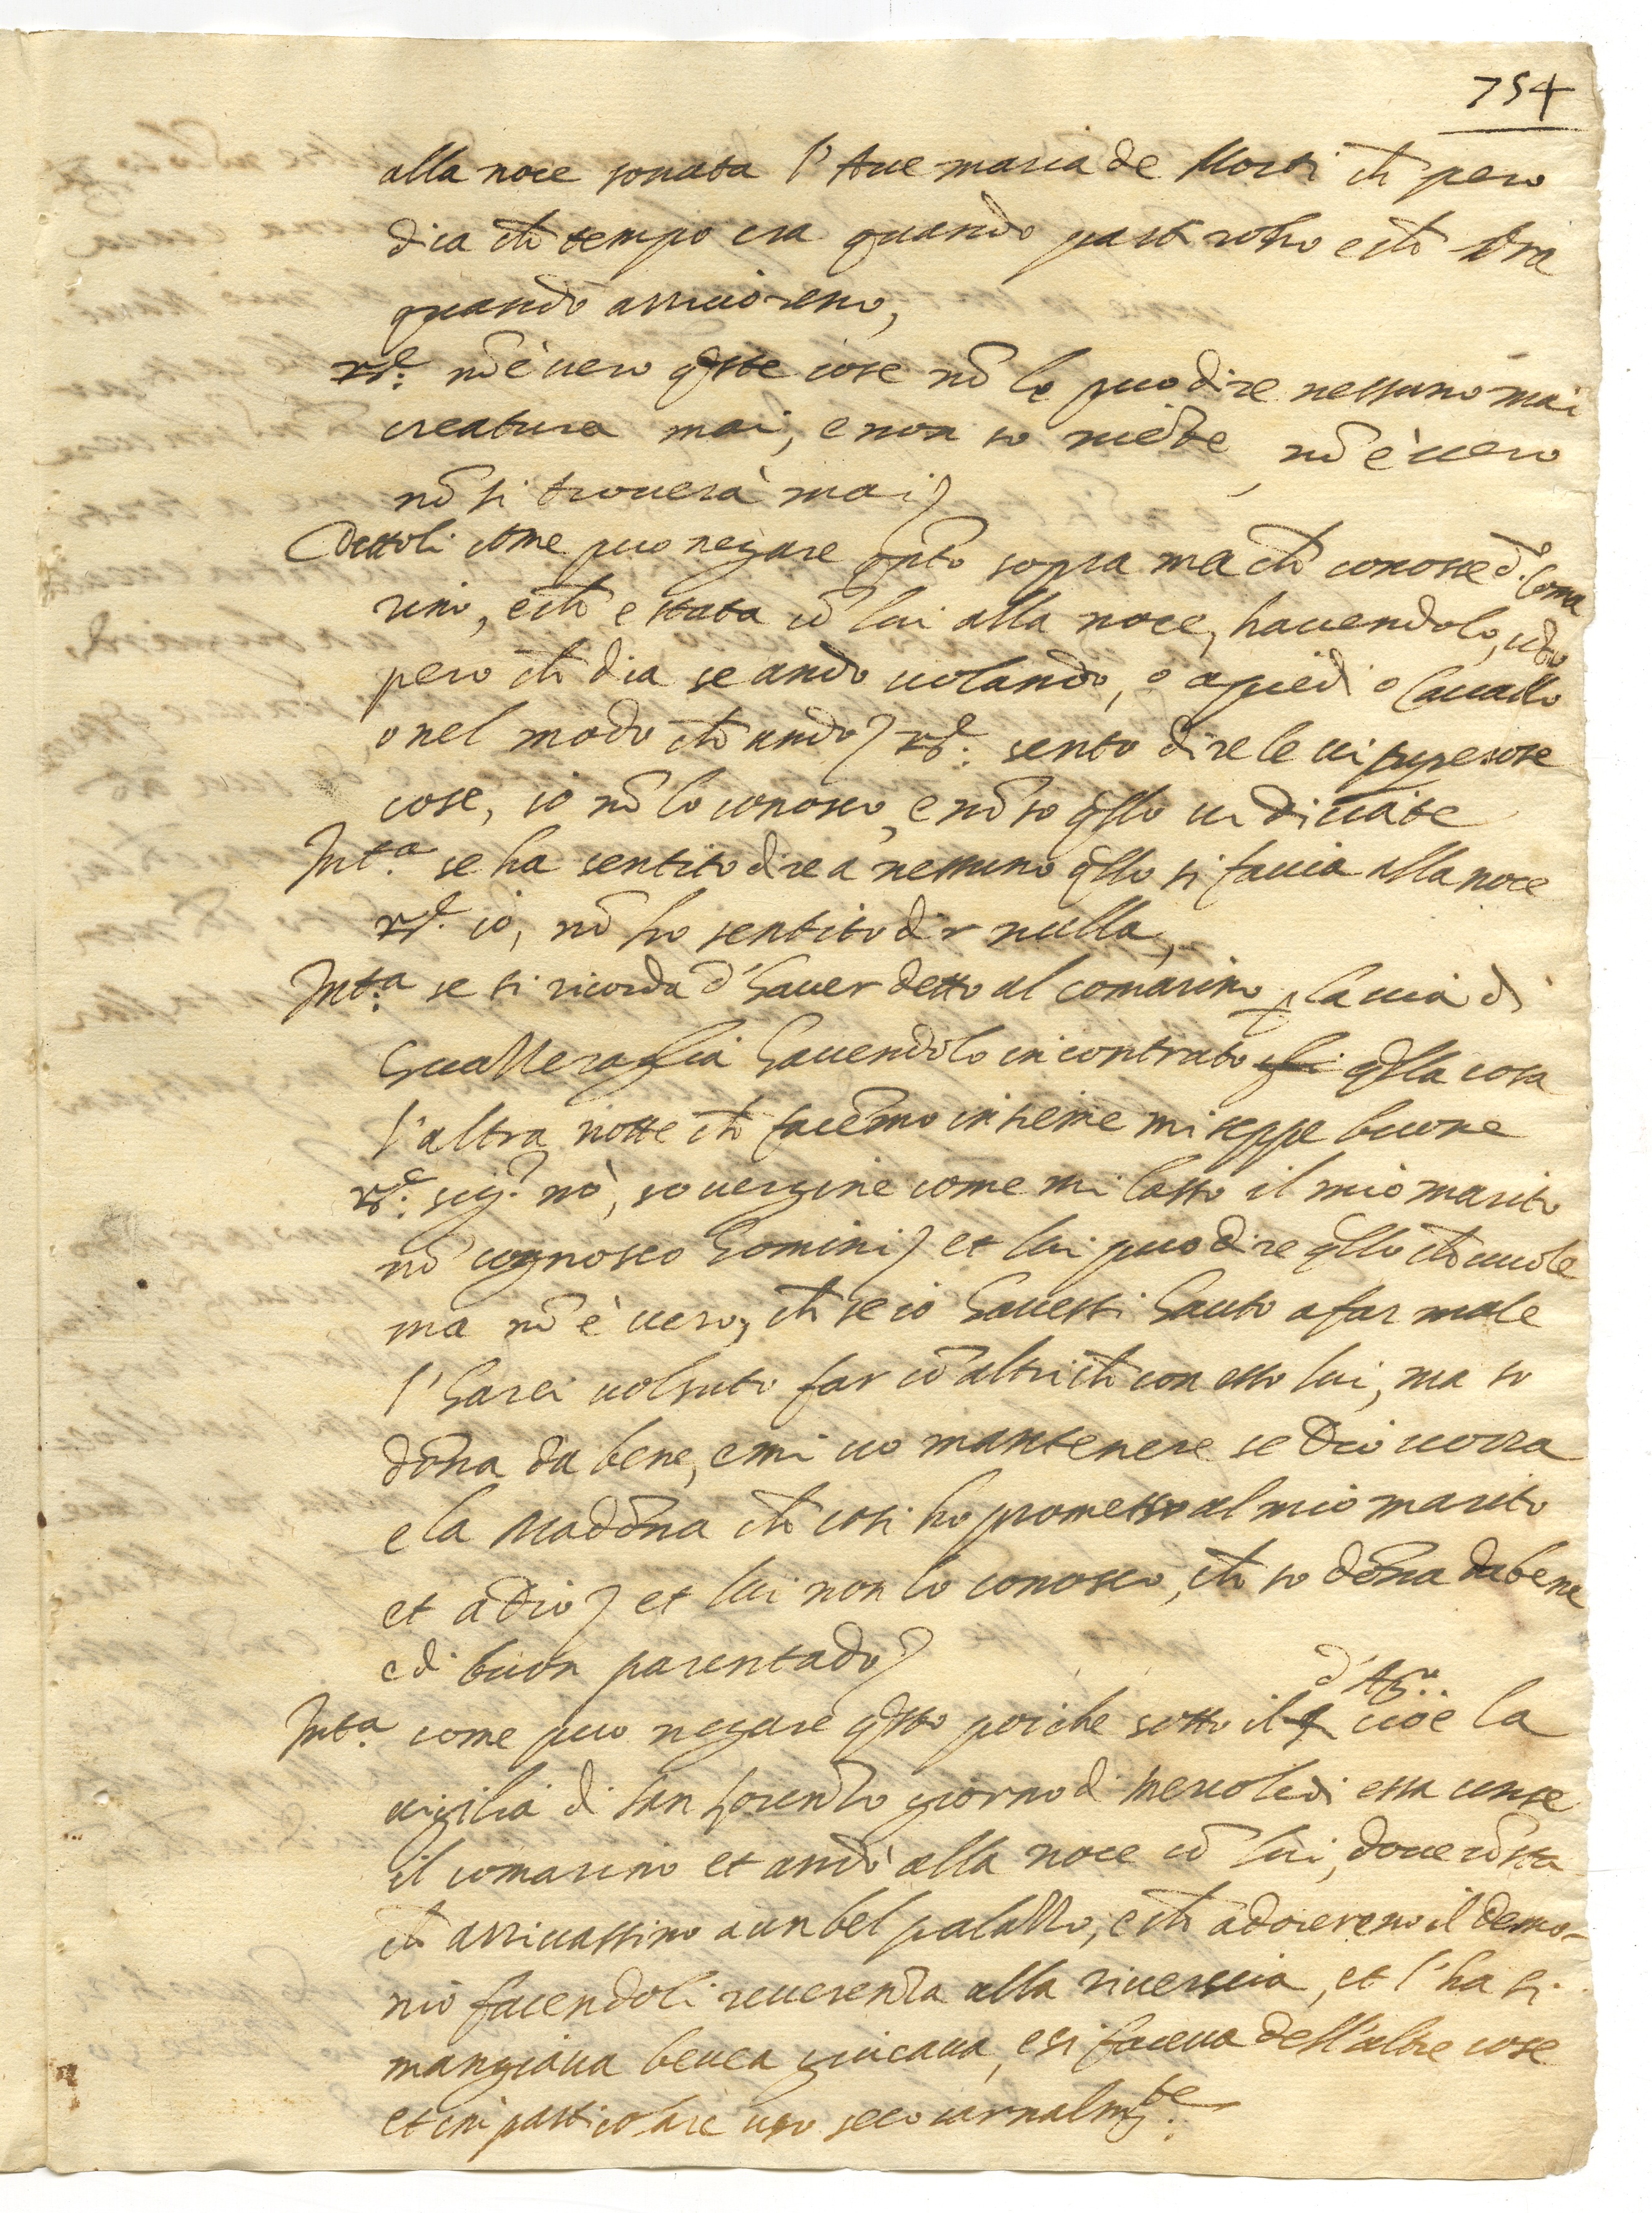 754
alla noce sonata l'Ave maria de Morti ch̃ pero
dica ch̃ tempo era quando partirono e ch̃ hora
quando arrivoreno,
rs.e nõ è vero q̃ste cose nõ le puo dire nessuno mai
creatura mai, e non so niẽte, nõ è vero
nõ si trovera mai
Dettoli come puo negare q̃sto sopra ma ch̃ conosce d.o Coma
rino, e ch̃ e stata cõ lui alla noce, havendolo,
pero ch̃ dia se andò volando, o a piedi o Cavallo
o nel modo ch̃ andò rs.e sento dire le viperose
cose, io nõ lo conosco, e nõ so q̃llo vi diciate
Int.a se ha sentito dire a nessuno q̃llo si faccia alla noce
rs.e io, nõ ho sentito dir nulla,
Int.a se si ricorda d'haver detto al comarino p la via di
Gualleraglia havendolo incontrato q̃lla cosa
l'altra notte ch̃ facẽmo insieme mi seppe buone
rs.e sig.r nò, so vergine come mi lasso il mio marito
nõ cognosco homini et lui puo dire q̃llo ch̃ vuole
ma nõ è vero, ch̃ se io havessi hauto a far male
l'harei volsuto far cõ altri ch̃ con esso lui, ma so
dõna da bene, e mi vo mantenere se Dio vorra
e la Madõna ch̃ cosi ho promesso al mio marito
et a Dio et lui non lo conosco, ch̃ so dõna da bene
e di buon parentado
d'Ag.o
Int.a come puo negare q̃sto poiche sotto il 9 cioè la
vigilia di San Lorenzo giorno di Mercoledi essa unse
il comarino et andò alla noce cõ lui, dove cõsta
ch̃ arrivassino a un bel palazzo, e ch̃ adororeno il demo-
nio facendoli reverenza alla riverscia, et l'ha si
mangiava beveva giucava, e si faceva dell'altre cose
et in particolare uso seco carnalm.te